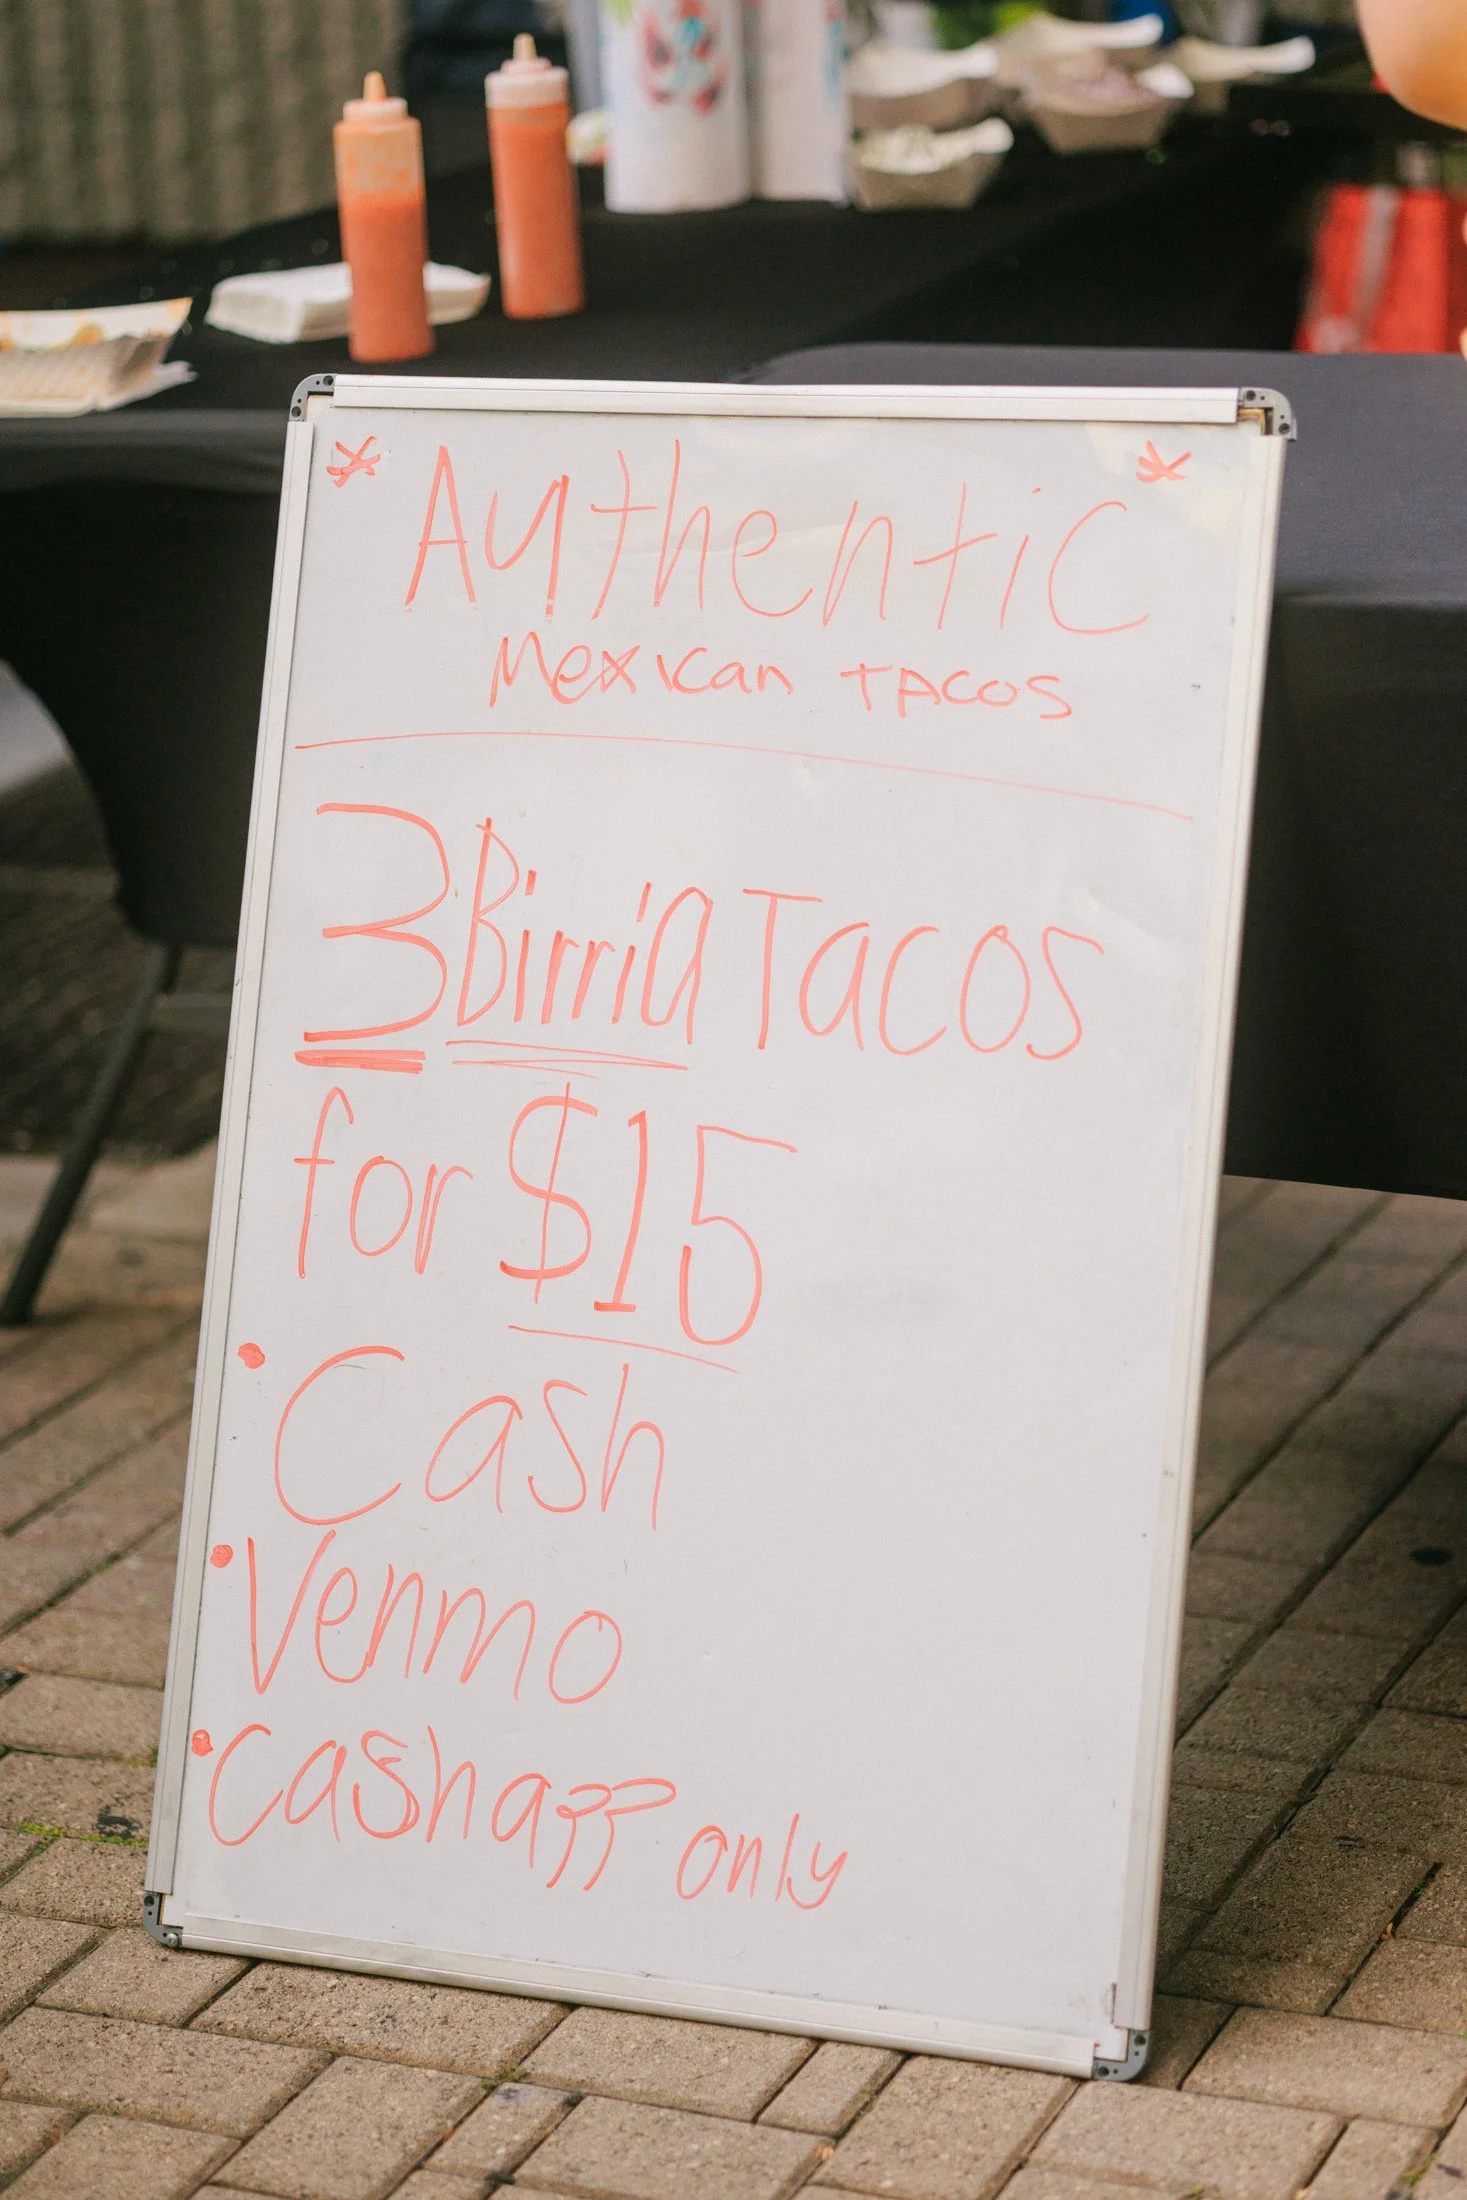 * Authentic *
Mexican TACOS
3 Birria Tacos
for $15
• Cash
• Venmo
• Cashapp only